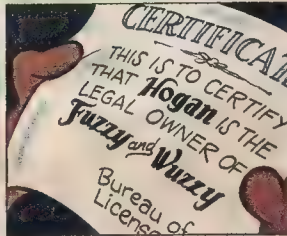 CERTIFICA
THIS IS TO CERTIFY
THAT Hogan IS THE
LEGAL OWNER OF
Fuzzy and Wuzzy
Bureau of
License